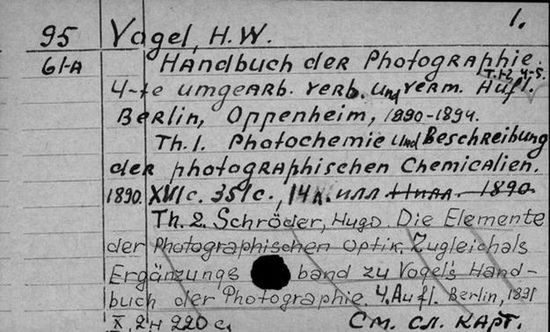 1.
95 Vogel, H.W.
61-A Handbuch der Photographie.
T. 1-2, 4-5.
4-te umgearb. verb. und verm. Aufl.
Berlin, Oppenheim, 1890-1894.
Th. 1. Photochemie und Beschreibung
der photographischen Chemicalien.
1890. XVI c. 351 c., 14 л. илл 1890
Th. 2. Schröder, Hugo. Die Elemente
der Photographischen Optik. Zugleich als
Ergänzungs band zu Vogel's Hand-
buch der Photographie. 4. Aufl. Berlin, 1891
X, 2н 220 c. См. сл. карт.